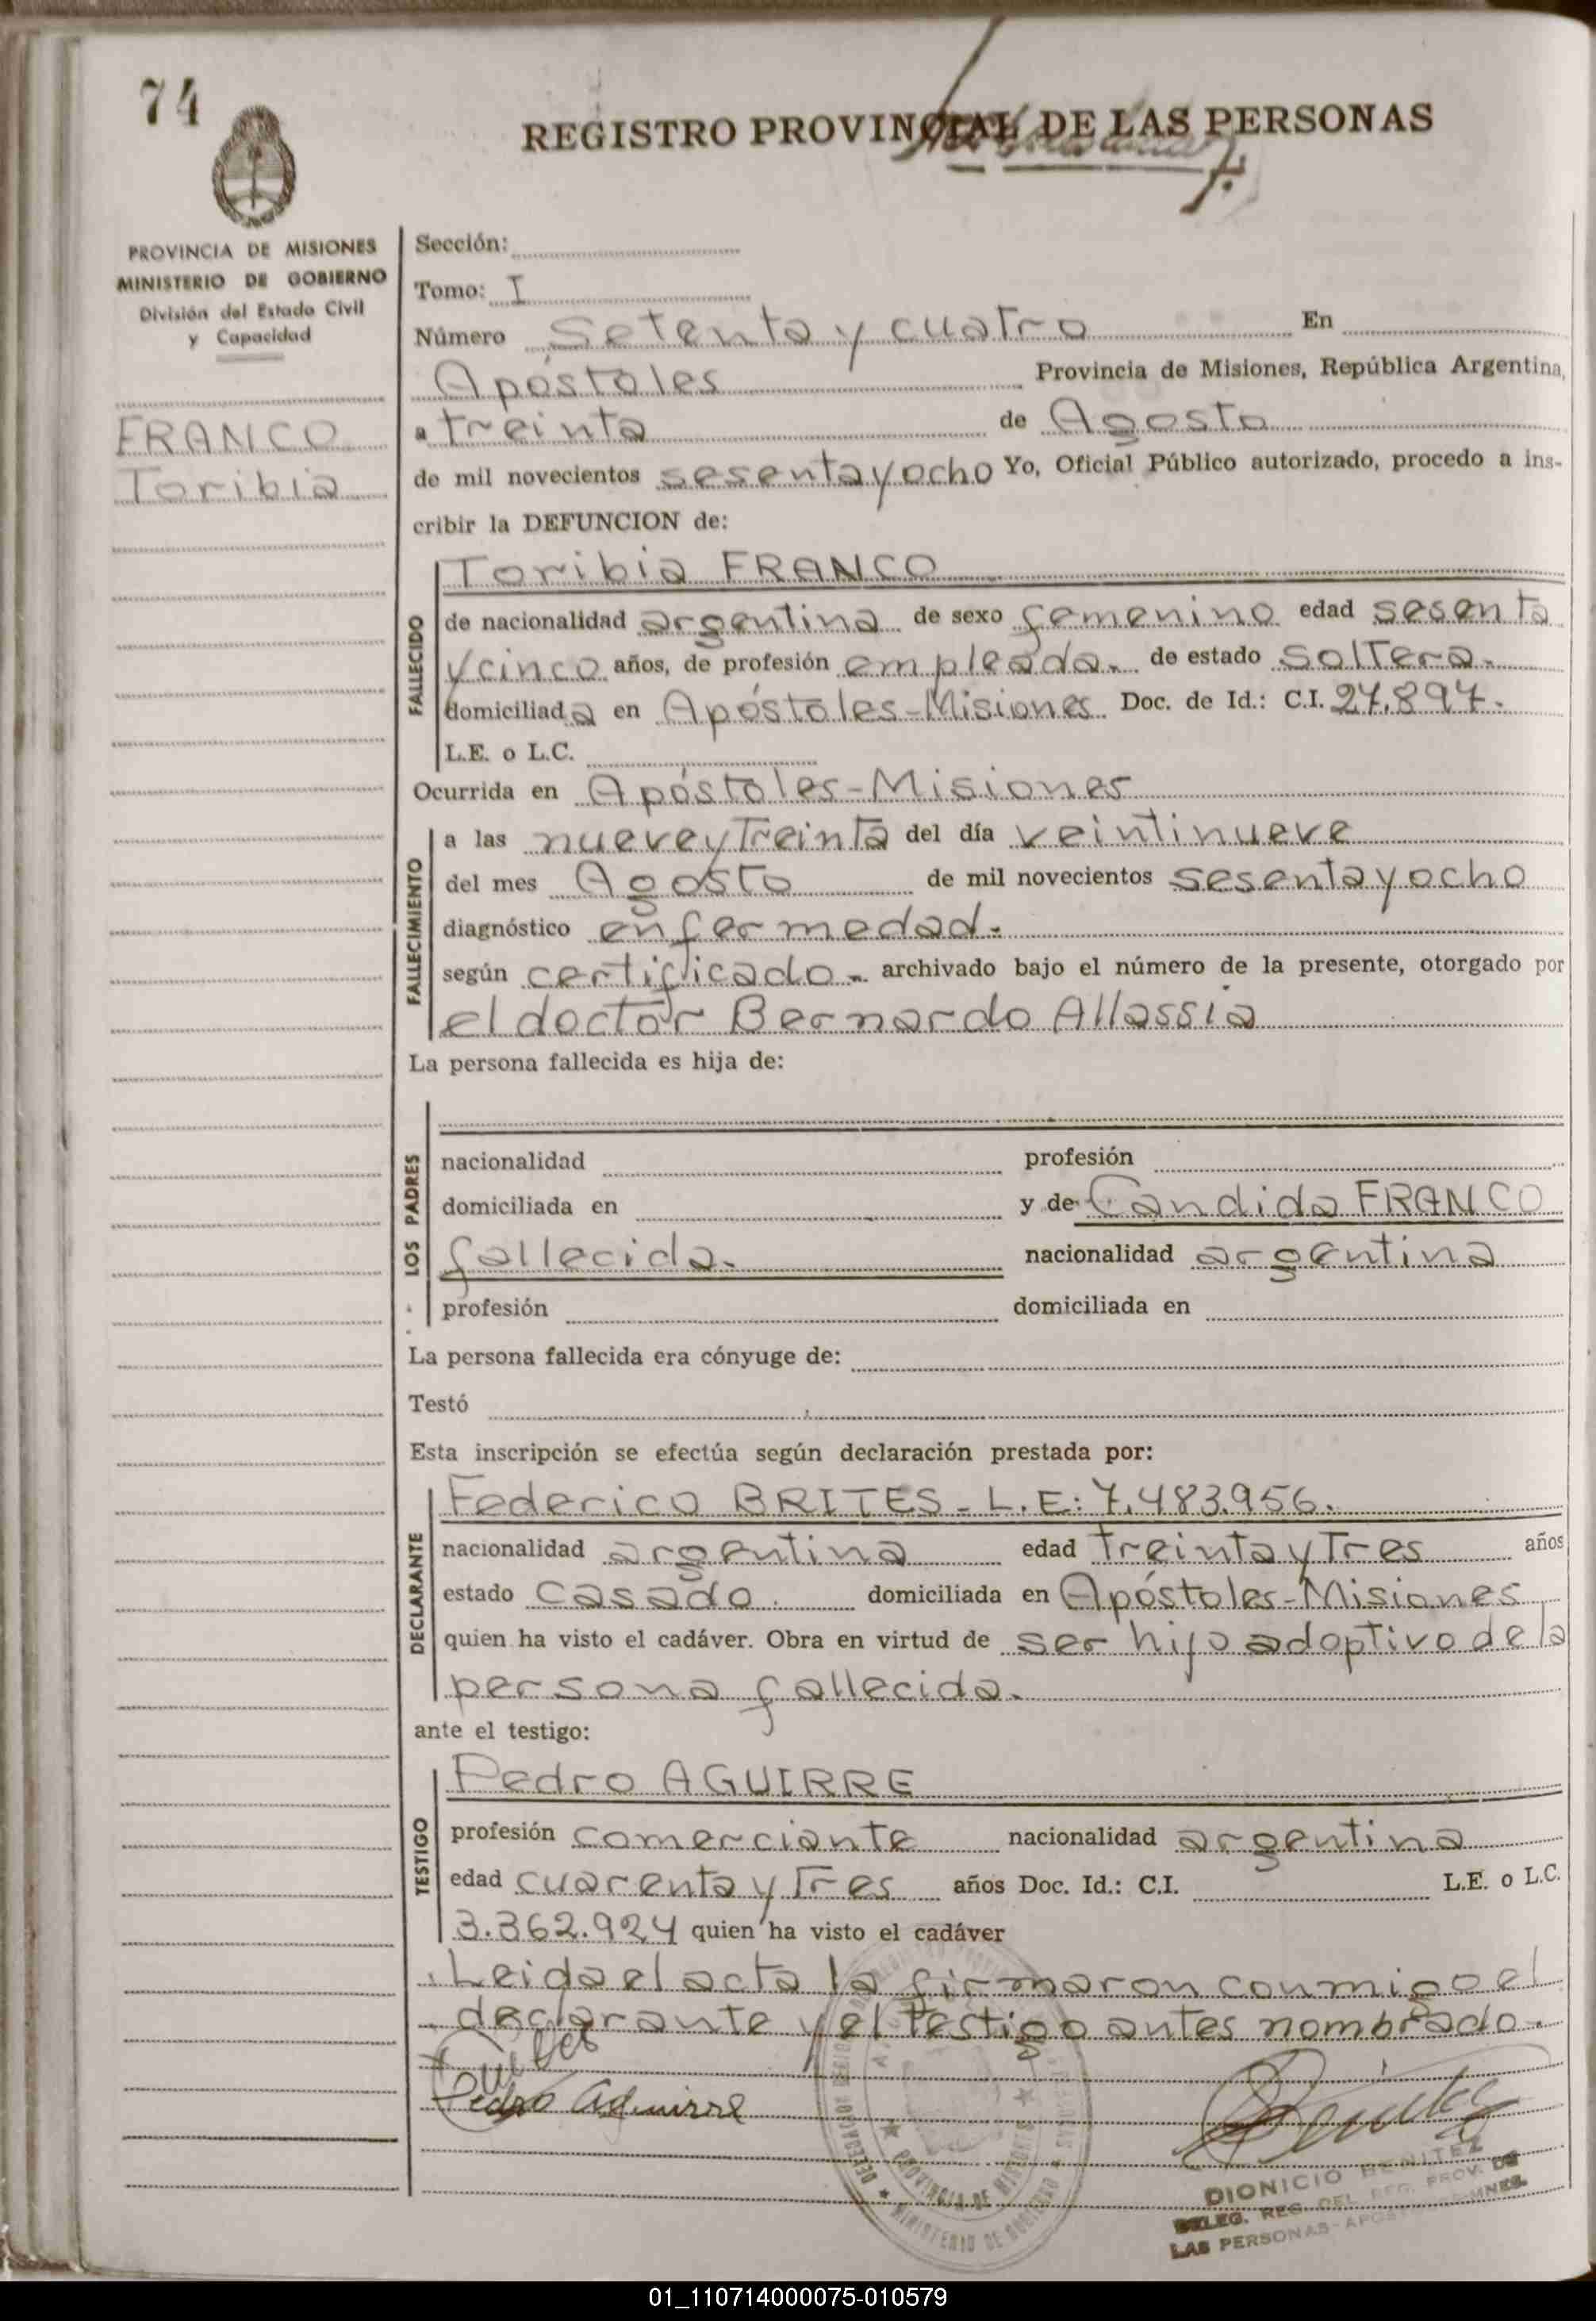 74
REGISTRO PROVINCIAL DE LAS PERSONAS
PROVINCIA DE MISIONES
MINISTERIO DE GOBIERNO
División del Estado Civil
y Capacidad
FRANCO
Toribia
Sección:
Tomo: I
Número Setenta y cuatro En
Apóstoles Provincia de Misiones, República Argentina,
a treinta de Agosto
de mil novecientos sesenta y ocho Yo, Oficial Público autorizado, procedo a ins-
cribir la DEFUNCION de:
FALLECIDO
Toribia FRANCO
de nacionalidad argentina de sexo femenino edad sesenta
y cinco años, de profesión empleada. de estado soltera.
domiciliada en Apóstoles-Misiones Doc. de Id.: C.I. 27.897.
L.E. o L.C.
Ocurrida en Apóstoles-Misiones
FALLECIMIENTO
a las nueve y treinta del día veintinueve
del mes Agosto de mil novecientos sesenta y ocho
diagnóstico enfermedad.
según certificado. archivado bajo el número de la presente, otorgado por
el doctor Bernardo Allassia
La persona fallecida es hija de:
LOS PADRES
nacionalidad profesión
domiciliada en y de Candida FRANCO
fallecida. nacionalidad argentina
profesión domiciliada en
La persona fallecida era cónyuge de:
Testó
Esta inscripción se efectúa según declaración prestada por:
DECLARANTE
Federico BRITES - L.E: 7.483.956.
nacionalidad argentina edad treinta y tres años
estado casado. domiciliada en Apóstoles-Misiones
quien ha visto el cadáver. Obra en virtud de ser hijo adoptivo de la
persona fallecida.
ante el testigo:
TESTIGO
Pedro AGUIRRE
profesión comerciante nacionalidad argentina
edad cuarenta y tres años Doc. Id.: C.I. L.E. o L.C.
3.362.924 quien ha visto el cadáver
Leida el acta la firmaron conmigo el
declarante y el testigo antes nombrado.
Pedro Aguirre
PROVINCIA DE MISIONES
MINISTERIO DE GOBIERNO
DIONICIO BENITEZ
DELEG. REG. DEL REG. PROV. DE
LAS PERSONAS - APOSTOLES-MNES.
01_110714000075-010579